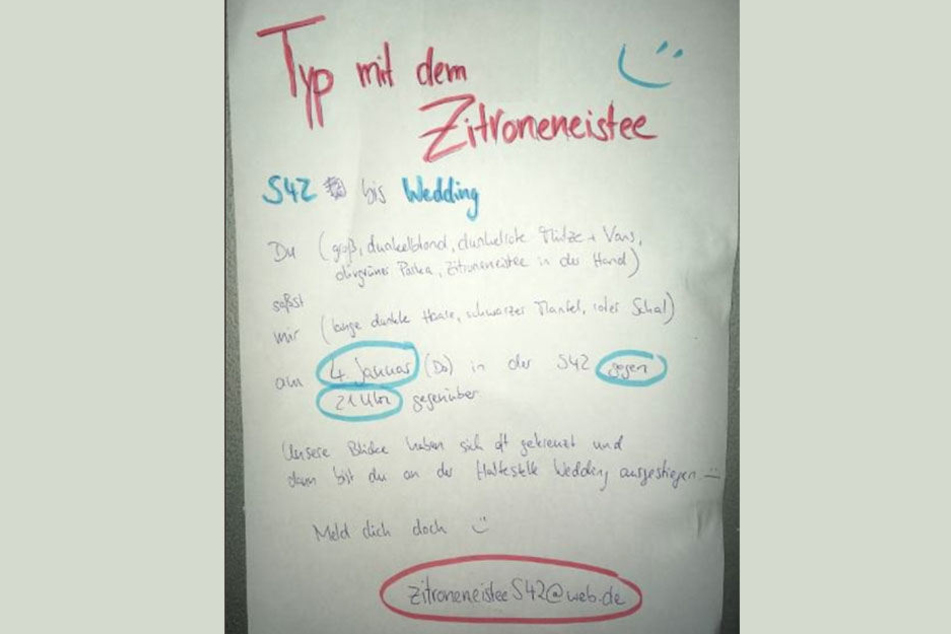 Typ mit dem
Zitroneneistee
S42 bis Wedding
Du (groß, dunkelblond, dunkelrote Mütze + Vans,
Parka, Zitroneneistee in der Hand)
saßst
mir (lange dunkle Haare, schwarzer Mantel, roter Schal)
am 4 Januar (Do) in der S42 gegen
21 Uhr gegenüber
Unsere Blicke haben sich oft gekreuzt und
dann bist du an der Haltestelle Wedding ausgestiegen
Meld dich doch
ZitroneneisteeS42@web.de